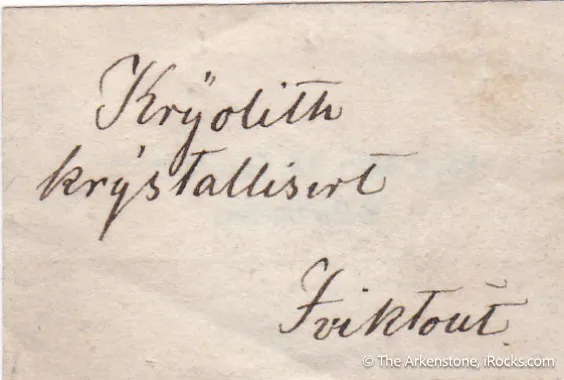 Krÿolith
krÿstallisirt
Iviktout.
© The Arkenstone, iRocks.com